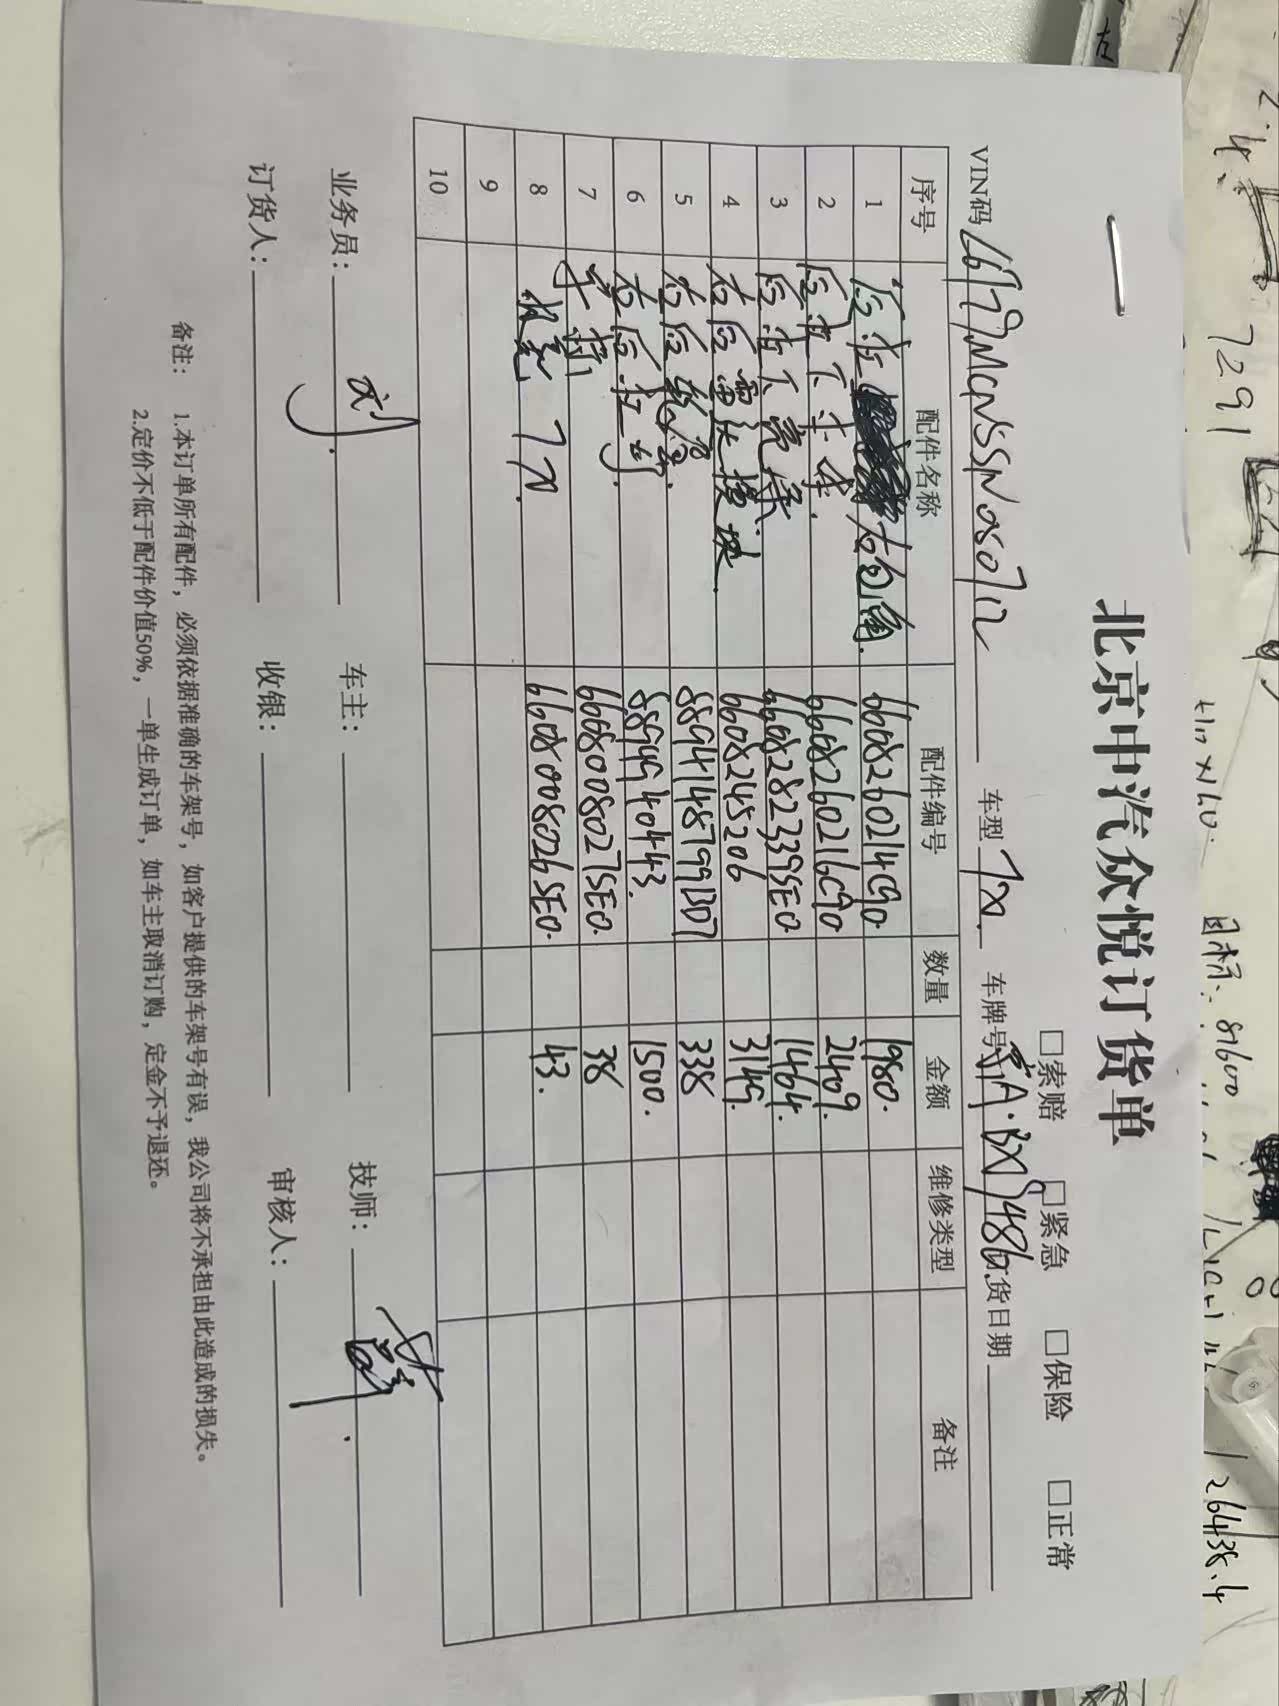 北京中汽众悦订货单
□索赔 □紧急 □保险 □正常
VIN码 车型 7X. 车牌号 A·BX9486. 货日期
序号 配件名称 配件编号 数量 金额 维修类型 备注
1 后杠 右包角. 6608260214C90. 1980.
2 后杠下半车. 6608260216C90 2409.
3 后杠下亮条 6608282339SE0. 1464.
4 右后雷达模块. 6608245206 3149.
5 右后轮罩. 8894148799B07 338
6 右后 8894940443. 1500.
7 卡扣 6608008027SE0. 38
8 7X. 6608008026SE0. 43.
9
10
业务员: 刘 车主: 技师:
订货人: 收银: 审核人:
备注: 1.本订单所有配件，必须依据准确的车架号，如客户提供的车架号有误，我公司将不承担由此造成的损失。
2.定价不低于配件价值50%，一单生成订单，如车主取消订购，定金不予退还。
7291
目标: 81600
126438.4